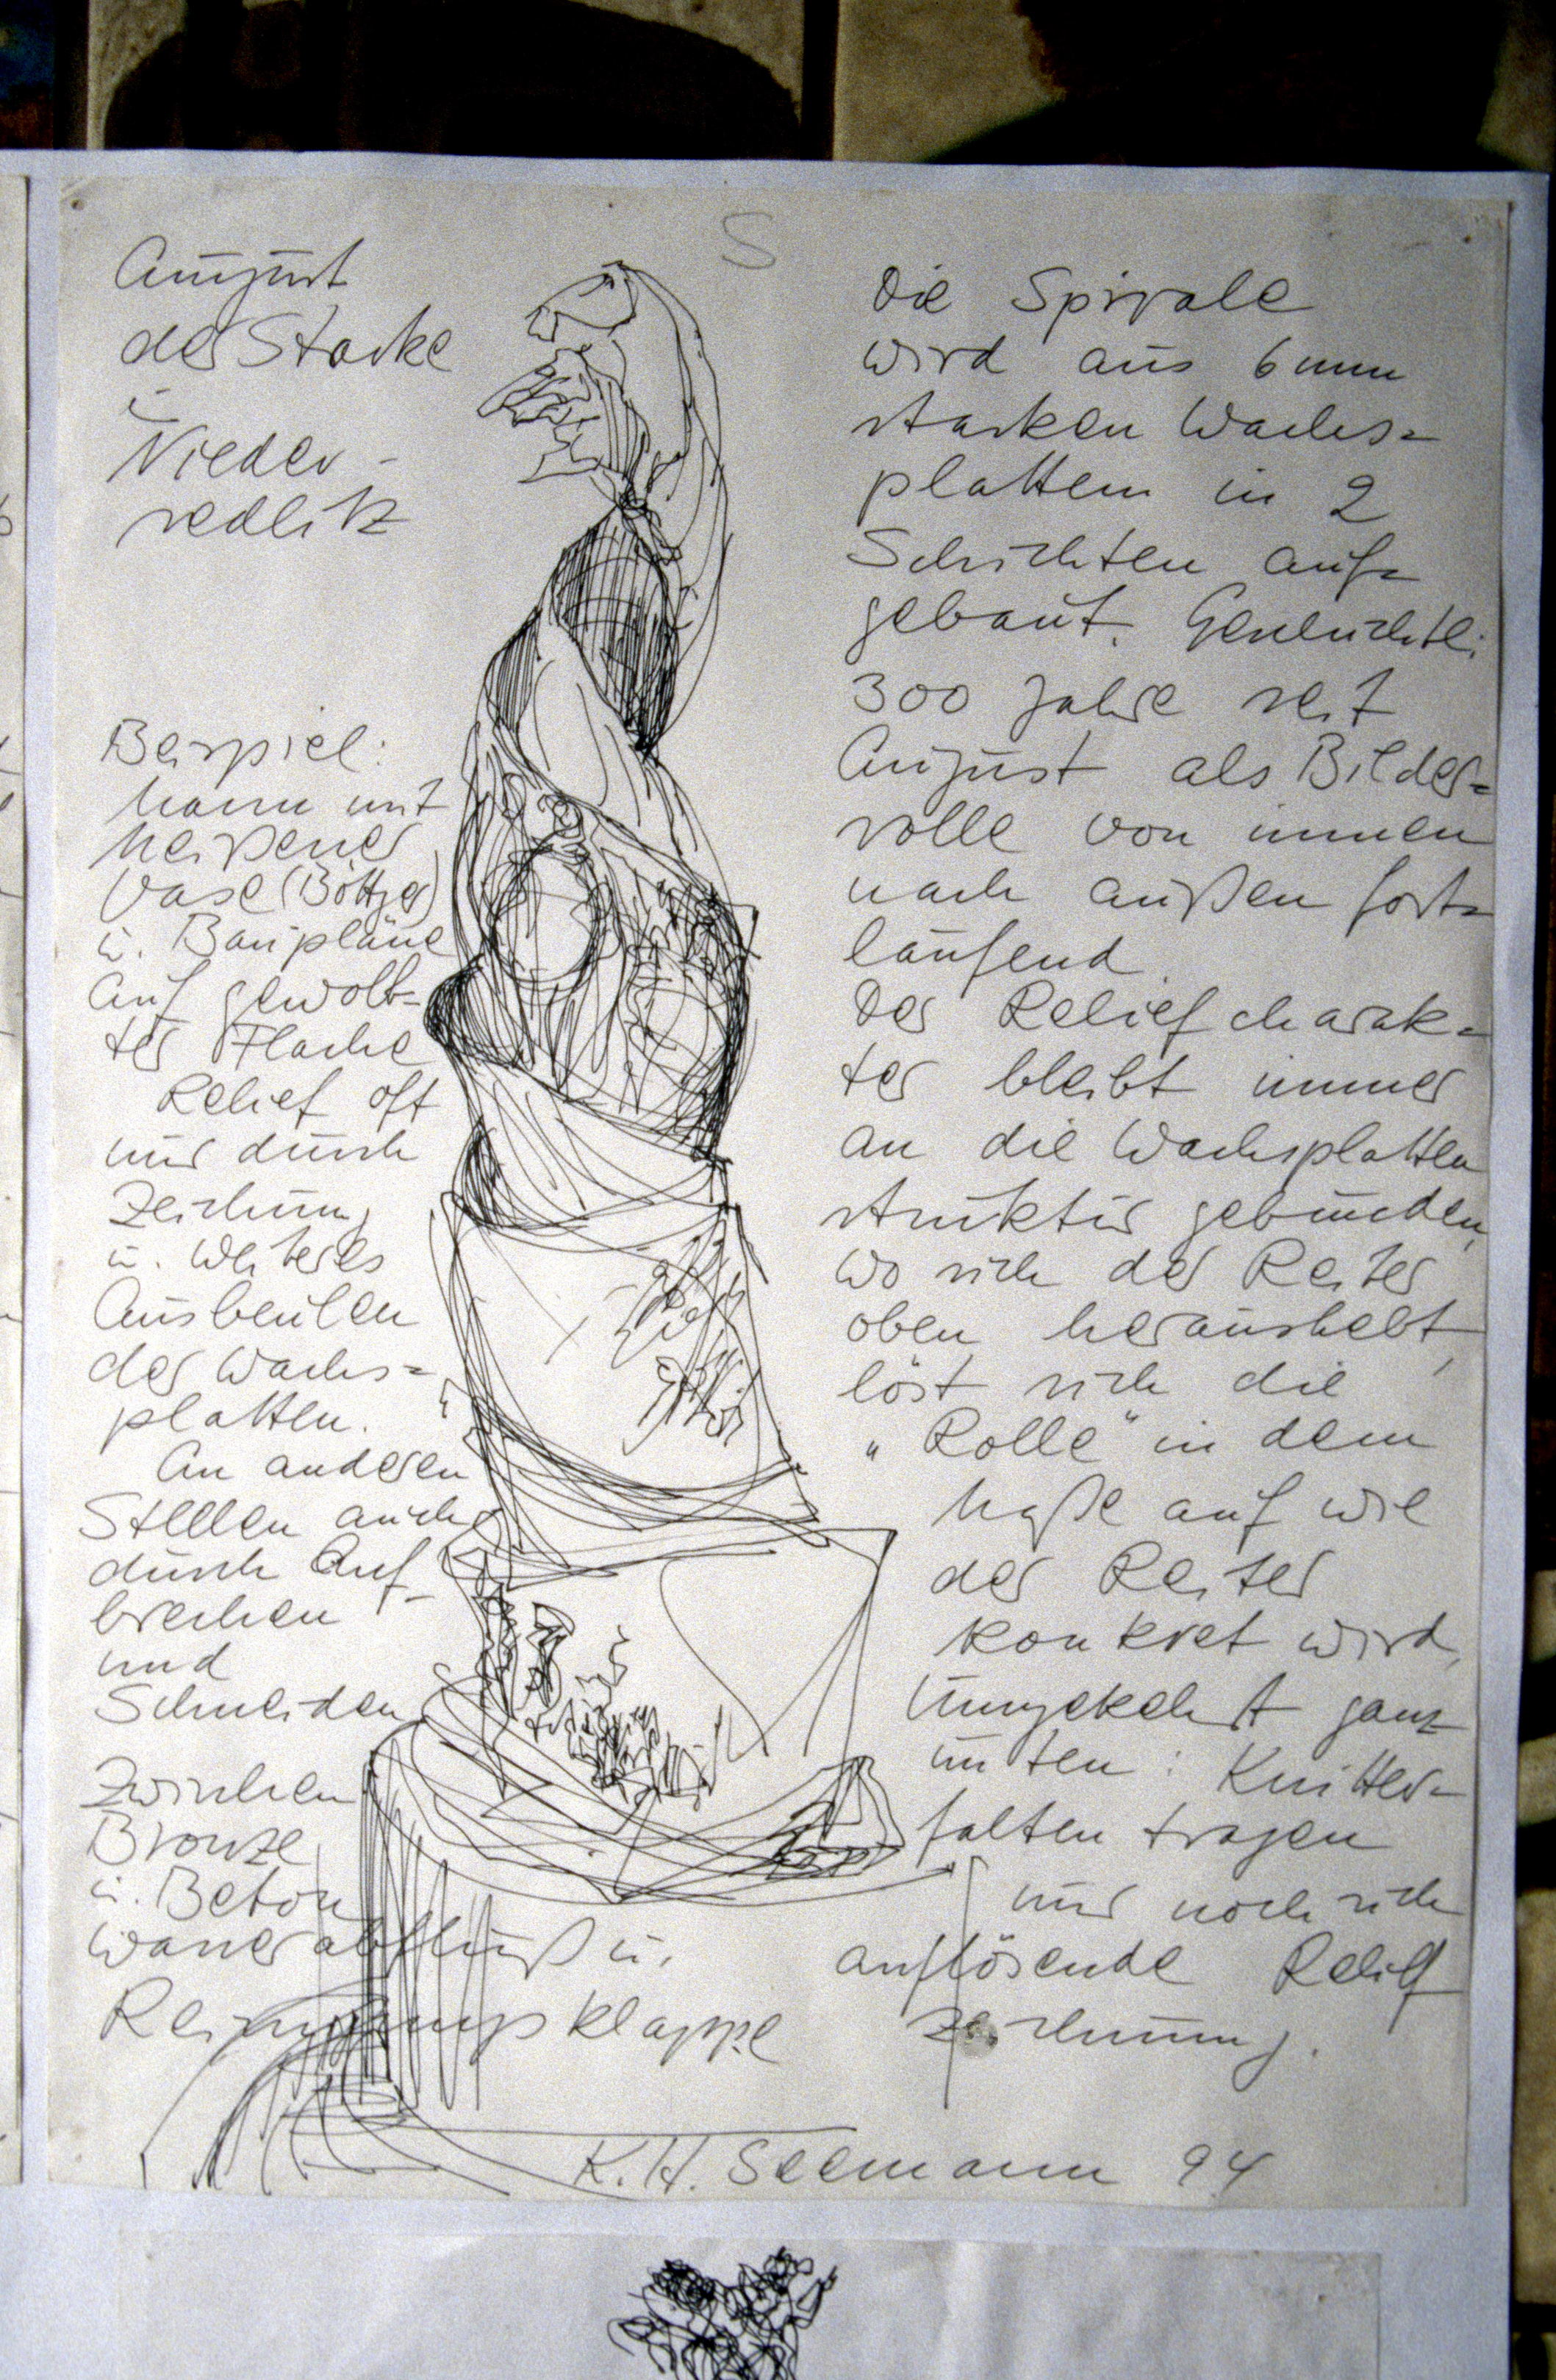 S
August
der Starke
i.
Nieder-
sedlitz
Beispiel:
Mann mit
Meißener
Vase (Böttger)
u. Baupläne
auf gewölb-
ter Fläche
Relief oft
nur durch
Zeichnung
u. weiteres
Ausbeulen
der Wachs=
platten.
An anderen
Stellen auch
durch Auf-
brechen
und
Schneiden
Zwischen
Bronze
u. Beton
Wasserabfluß u.
Reinigungsklappe
Die Spirale
wird aus 6 mm
starken Wachs=
platten in 2
Schichten auf=
gebaut. Geschichtl:
300 Jahre seit
August als Bilder=
rolle von innen
nach außen fort=
laufend.
Der Reliefcharak=
ter bleibt immer
an die Wachsplatten
struktur gebunden,
wo sich der Reiter
oben heraushebt,
löst sich die
„Rolle" in dem
Maße auf wie
der Reiter
konkret wird,
Umgekehrt ganz
unten: Knitter=
falten tragen
nur noch sich
auflösende Relief
zeichnung.
K. H. Seemann 94